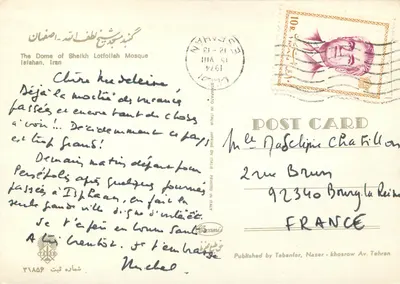 گنبد مسجد شیخ لطف‌الله - اصفهان
The Dome of Sheikh Lotfollah Mosque
Isfahan, Iran
Chère Madeleine!
Déjà la moitié des vacances
passées et encore tant de choses
à voir!.. Décidemment ce pays
est trop grand!
Demain matin départ pour
Persépolis après quelques journées
passées à Isphaan, en fait la
seule grande ville digne d'intérêt.
Je t'espère en bonne santé
A très bientôt. Je t'embrasse
Michel
VIII
1974
10 R
POST CARD
Mlle Madeleine Chatillon
2 rue Brun
92340 Bourg la Reine
FRANCE
Published by Tebenfar, Naser-khosrow Av. Tehran
شماره ثبت ۳۱۸۵۴